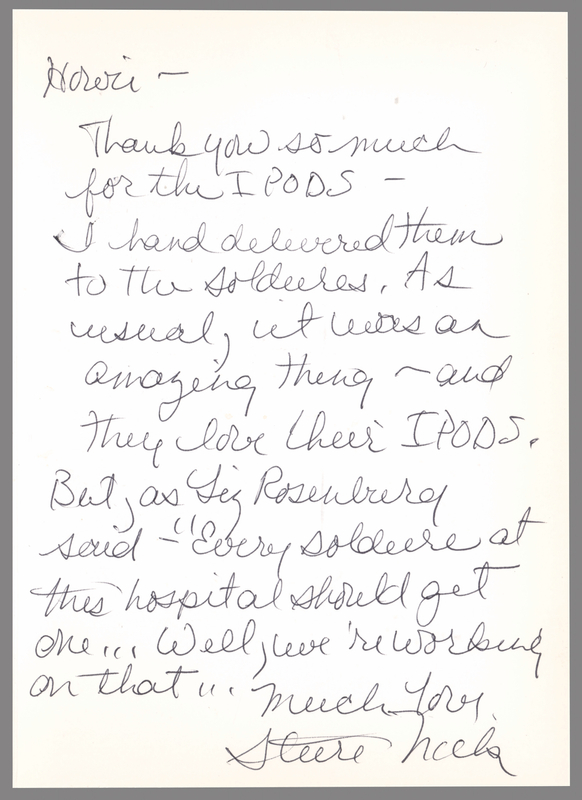 Howie —
Thank you so much
for the IPODS —
I hand delivered them
to the soldieres. As
usual, it was an
amazing thing — and
they love their IPODS.
But, as Liz Rosenberg
said — "Every soldiere at
this hospital should get
one... Well, we're working
on that"...
Much Love,
Stevie Nicks